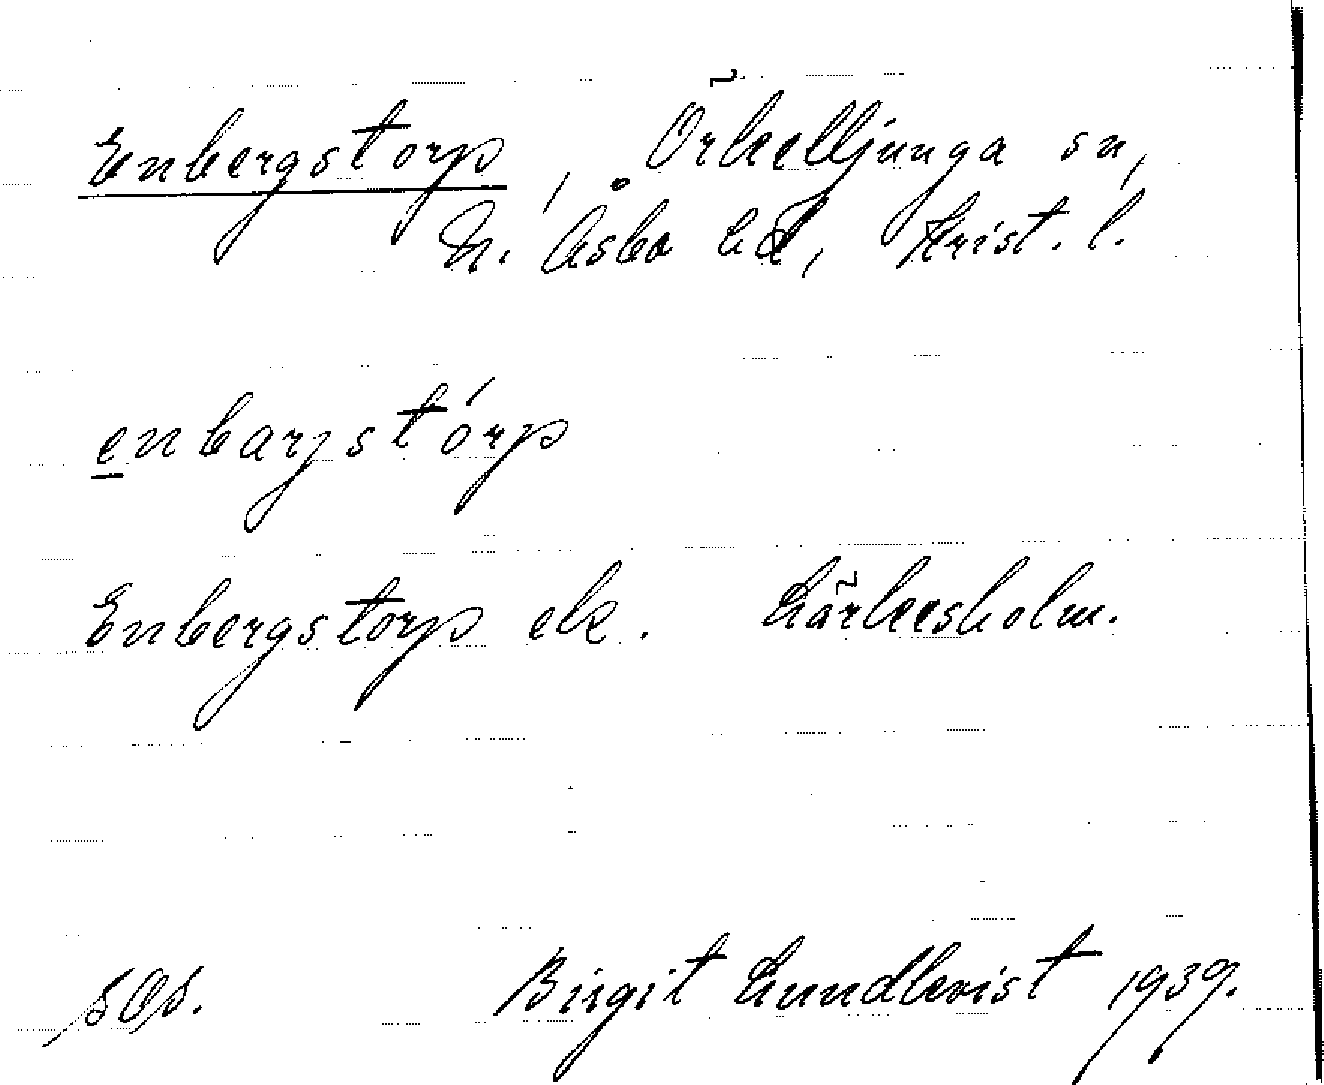 Enbergstorp, Örkelljunga sn,
N. Åsbo hd, Krist. l.
enbarjstórp
Enbergstorp ek. Kärleksholm.
Birgit Lundkvist 1939.